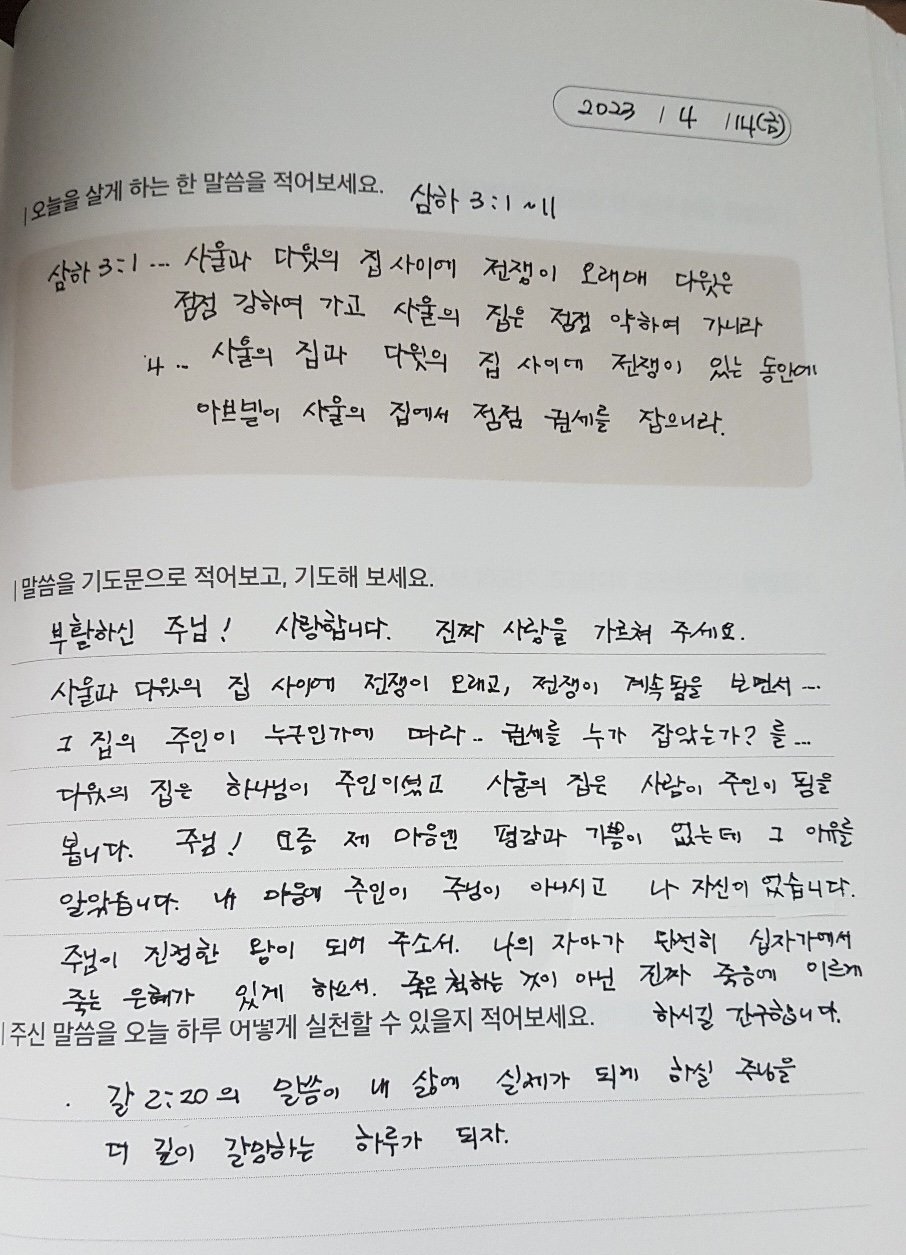 2023 / 4 / 14(금)
오늘을 살게 하는 한 말씀을 적어보세요. 삼하 3:1~11
삼하 3:1 ... 사울과 다윗의 집 사이에 전쟁이 오래매 다윗은
점점 강하여 가고 사울의 집은 점점 약하여 가니라
4 .. 사울의 집과 다윗의 집 사이에 전쟁이 있는 동안에
아브넬이 사울의 집에서 점점 권세를 잡으니라.
말씀을 기도문으로 적어보고, 기도해 보세요.
부활하신 주님! 사랑합니다. 진짜 사랑을 가르쳐 주세요.
사울과 다윗의 집 사이에 전쟁이 오래고, 전쟁이 계속됨을 보면서...
그 집의 주인이 누구인가에 따라.. 권세를 누가 잡았는가? 를...
다윗의 집은 하나님이 주인이셨고 사울의 집은 사람이 주인이 됨을
봅니다. 주님! 요즘 제 마음엔 평강과 기쁨이 없는데 그 이유를
알았습니다. 내 마음에 주인이 주님이 아니시고 나 자신이었습니다.
주님이 진정한 왕이 되어 주소서. 나의 자아가 온전히 십자가에서
죽는 은혜가 있게 하소서. 죽은 척하는 것이 아닌 진짜 죽음에 이르게
하시길 간구합니다.
주신 말씀을 오늘 하루 어떻게 실천할 수 있을지 적어보세요.
. 갈 2:20의 말씀이 내 삶에 실제가 되게 하실 주님을
더 깊이 갈망하는 하루가 되자.